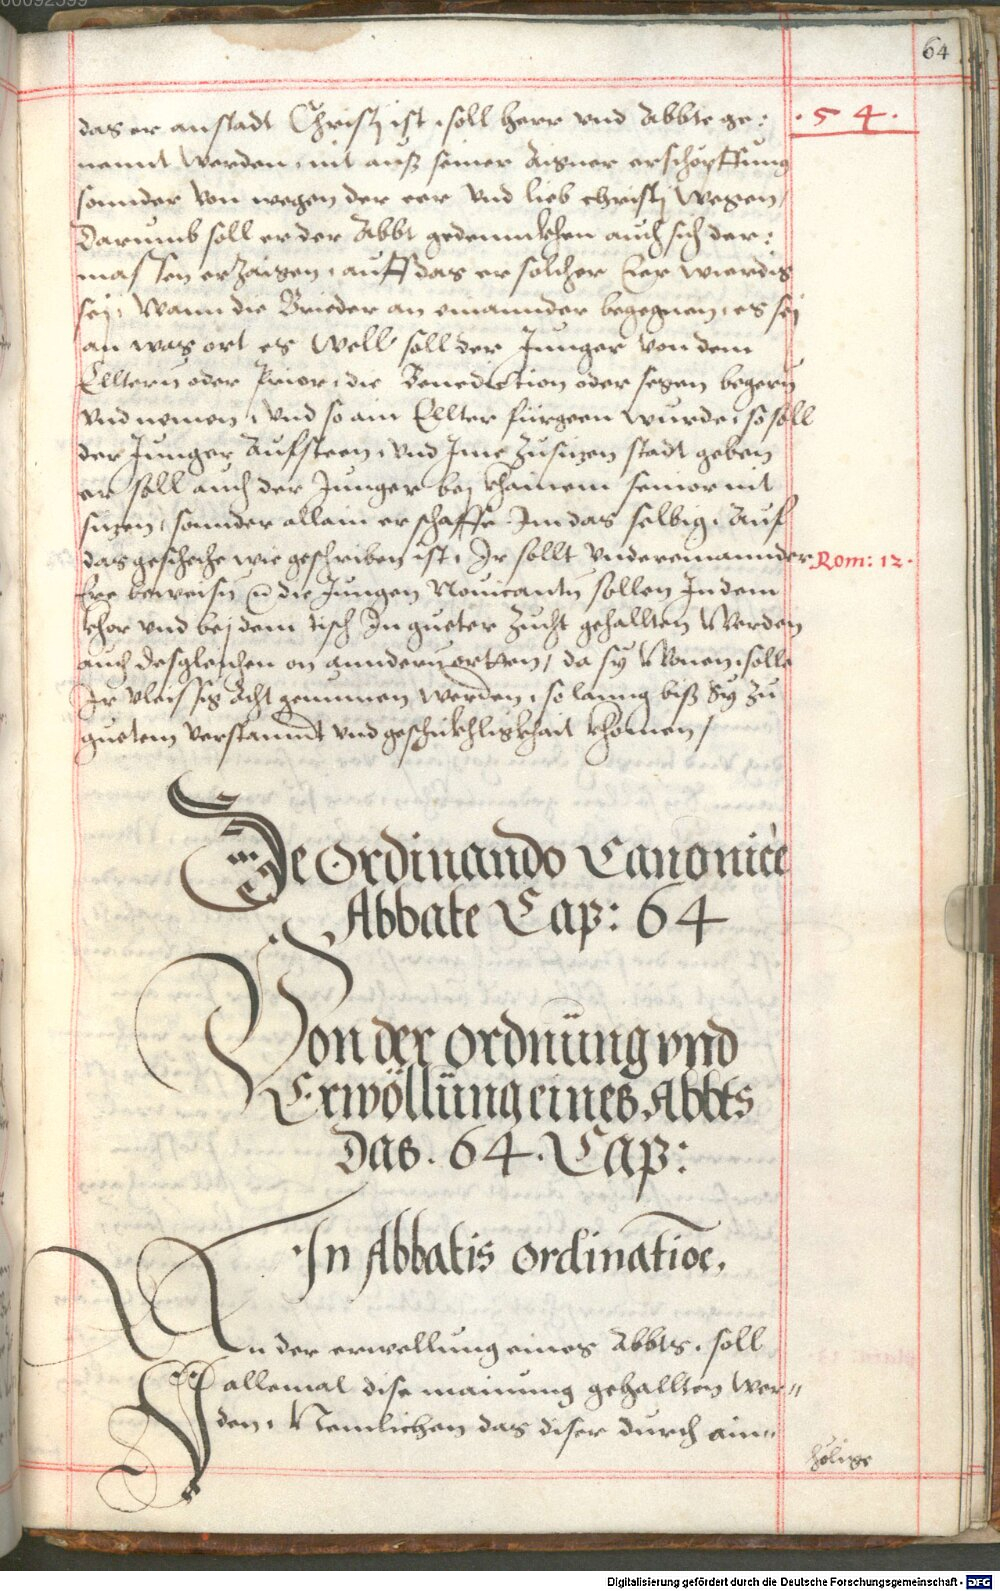 00092599
64
das er anstadt Christj ist, soll herr vnd Abbte ge:
· 5 4 ·
nennt werden, nit auß seiner Aigner erschöpffung
sonnder von wegen der eer vnd lieb christj wegen /
Darumb soll er der Abbt gedennckhen auch sich der:
massen erzaigen, auff das er solcher Eer wierdig
sej, Wann die Brieder an einannder begegnen, es sej
an was ort es well soll der Junger von dem
Elltern oder Prior, die Benediction oder segen begern
vnd nemen, vnd so ain Ellter fürgeen wurde, so soll
der Junger Aufsteen, vnd Jme zusitzen stadt geben
er soll auch der Junger bej khainem senior nit
sitzen, sonnder allain er schaffe Jm das selbig, Auf
das geschehe wie geschriben ist, Jr sollt vndereinannder
Rom: 12·
Ere beweisn die Jungen Nouicanten sollen Jn dem
khor vnd bej dem tisch Jn gueter zucht gehallten Werden
auch desgleichen on anndern ortten, da sy Wonen, solle
Jr vleissig Acht genumen werden, so lanng biß Sy zu
guetem verstanndt vnd geschickhligkhait khomen /
De Ordinando Canonice
Abbate Cap: 64
Von der ordnüng vnd
Erwöllüng eines Abbts
Das · 64 · Cap:
In Abbatis ordinatioe,
An der erwellung eines Abbts, soll
allemal dise mainung gehallten wer"
den, Nemlichen das diser durch ain"
hölige
Digitalisierung gefördert durch die Deutsche Forschungsgemeinschaft - DFG